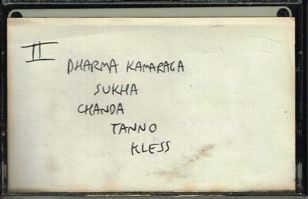 II
DHARMA KAMARAGA
SUKHA
CHANDA
TANNO
KLESS